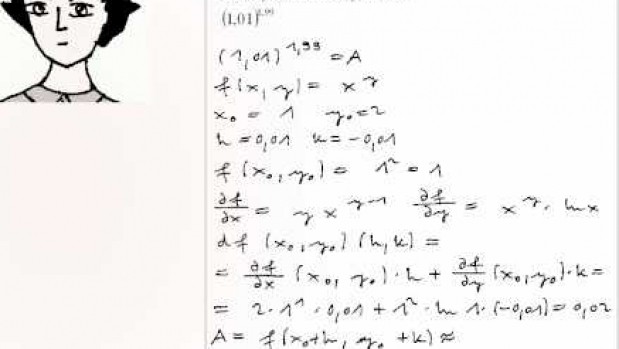 (1,01)^1,99
(1,01)^1,99 = A
f(x, y) = x^y
x₀ = 1 y₀ = 2
h = 0,01 k = -0,01
f(x₀, y₀) = 1² = 1
∂f/∂x = y x^(y-1) ∂f/∂y = x^y · ln x
df(x₀, y₀)(h, k) =
= ∂f/∂x (x₀, y₀) · h + ∂f/∂y (x₀, y₀) · k =
= 2 · 1¹ · 0,01 + 1² · ln 1 · (-0,01) = 0,02
A = f(x₀+h, y₀+k) ≈